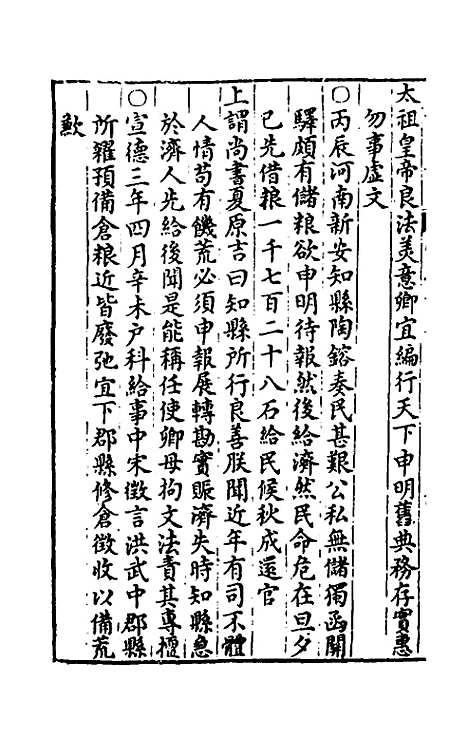 太祖皇帝良法美意卿宜編行天下申明舊典務存實惠
勿事虛文
○丙辰河南新安知縣陶鎔奏民甚艱公私無儲獨函關
驛頗有儲粮欲申明待報然後給濟然民命危在旦夕
已先借粮一千七百二十八石給民候秋成還官
上謂尚書夏原吉曰知縣所行良善朕聞近年有司不體
人情苟有饑荒必須申報展轉勘實賑濟失時知縣急
於濟人先給後聞是能稱任使卿毋拘文法責其專擅
○宣德三年四月辛未戶科給事中宋徵言洪武中郡縣
所糴預備倉粮近皆廢弛宜下郡縣修倉徵收以備荒
歉